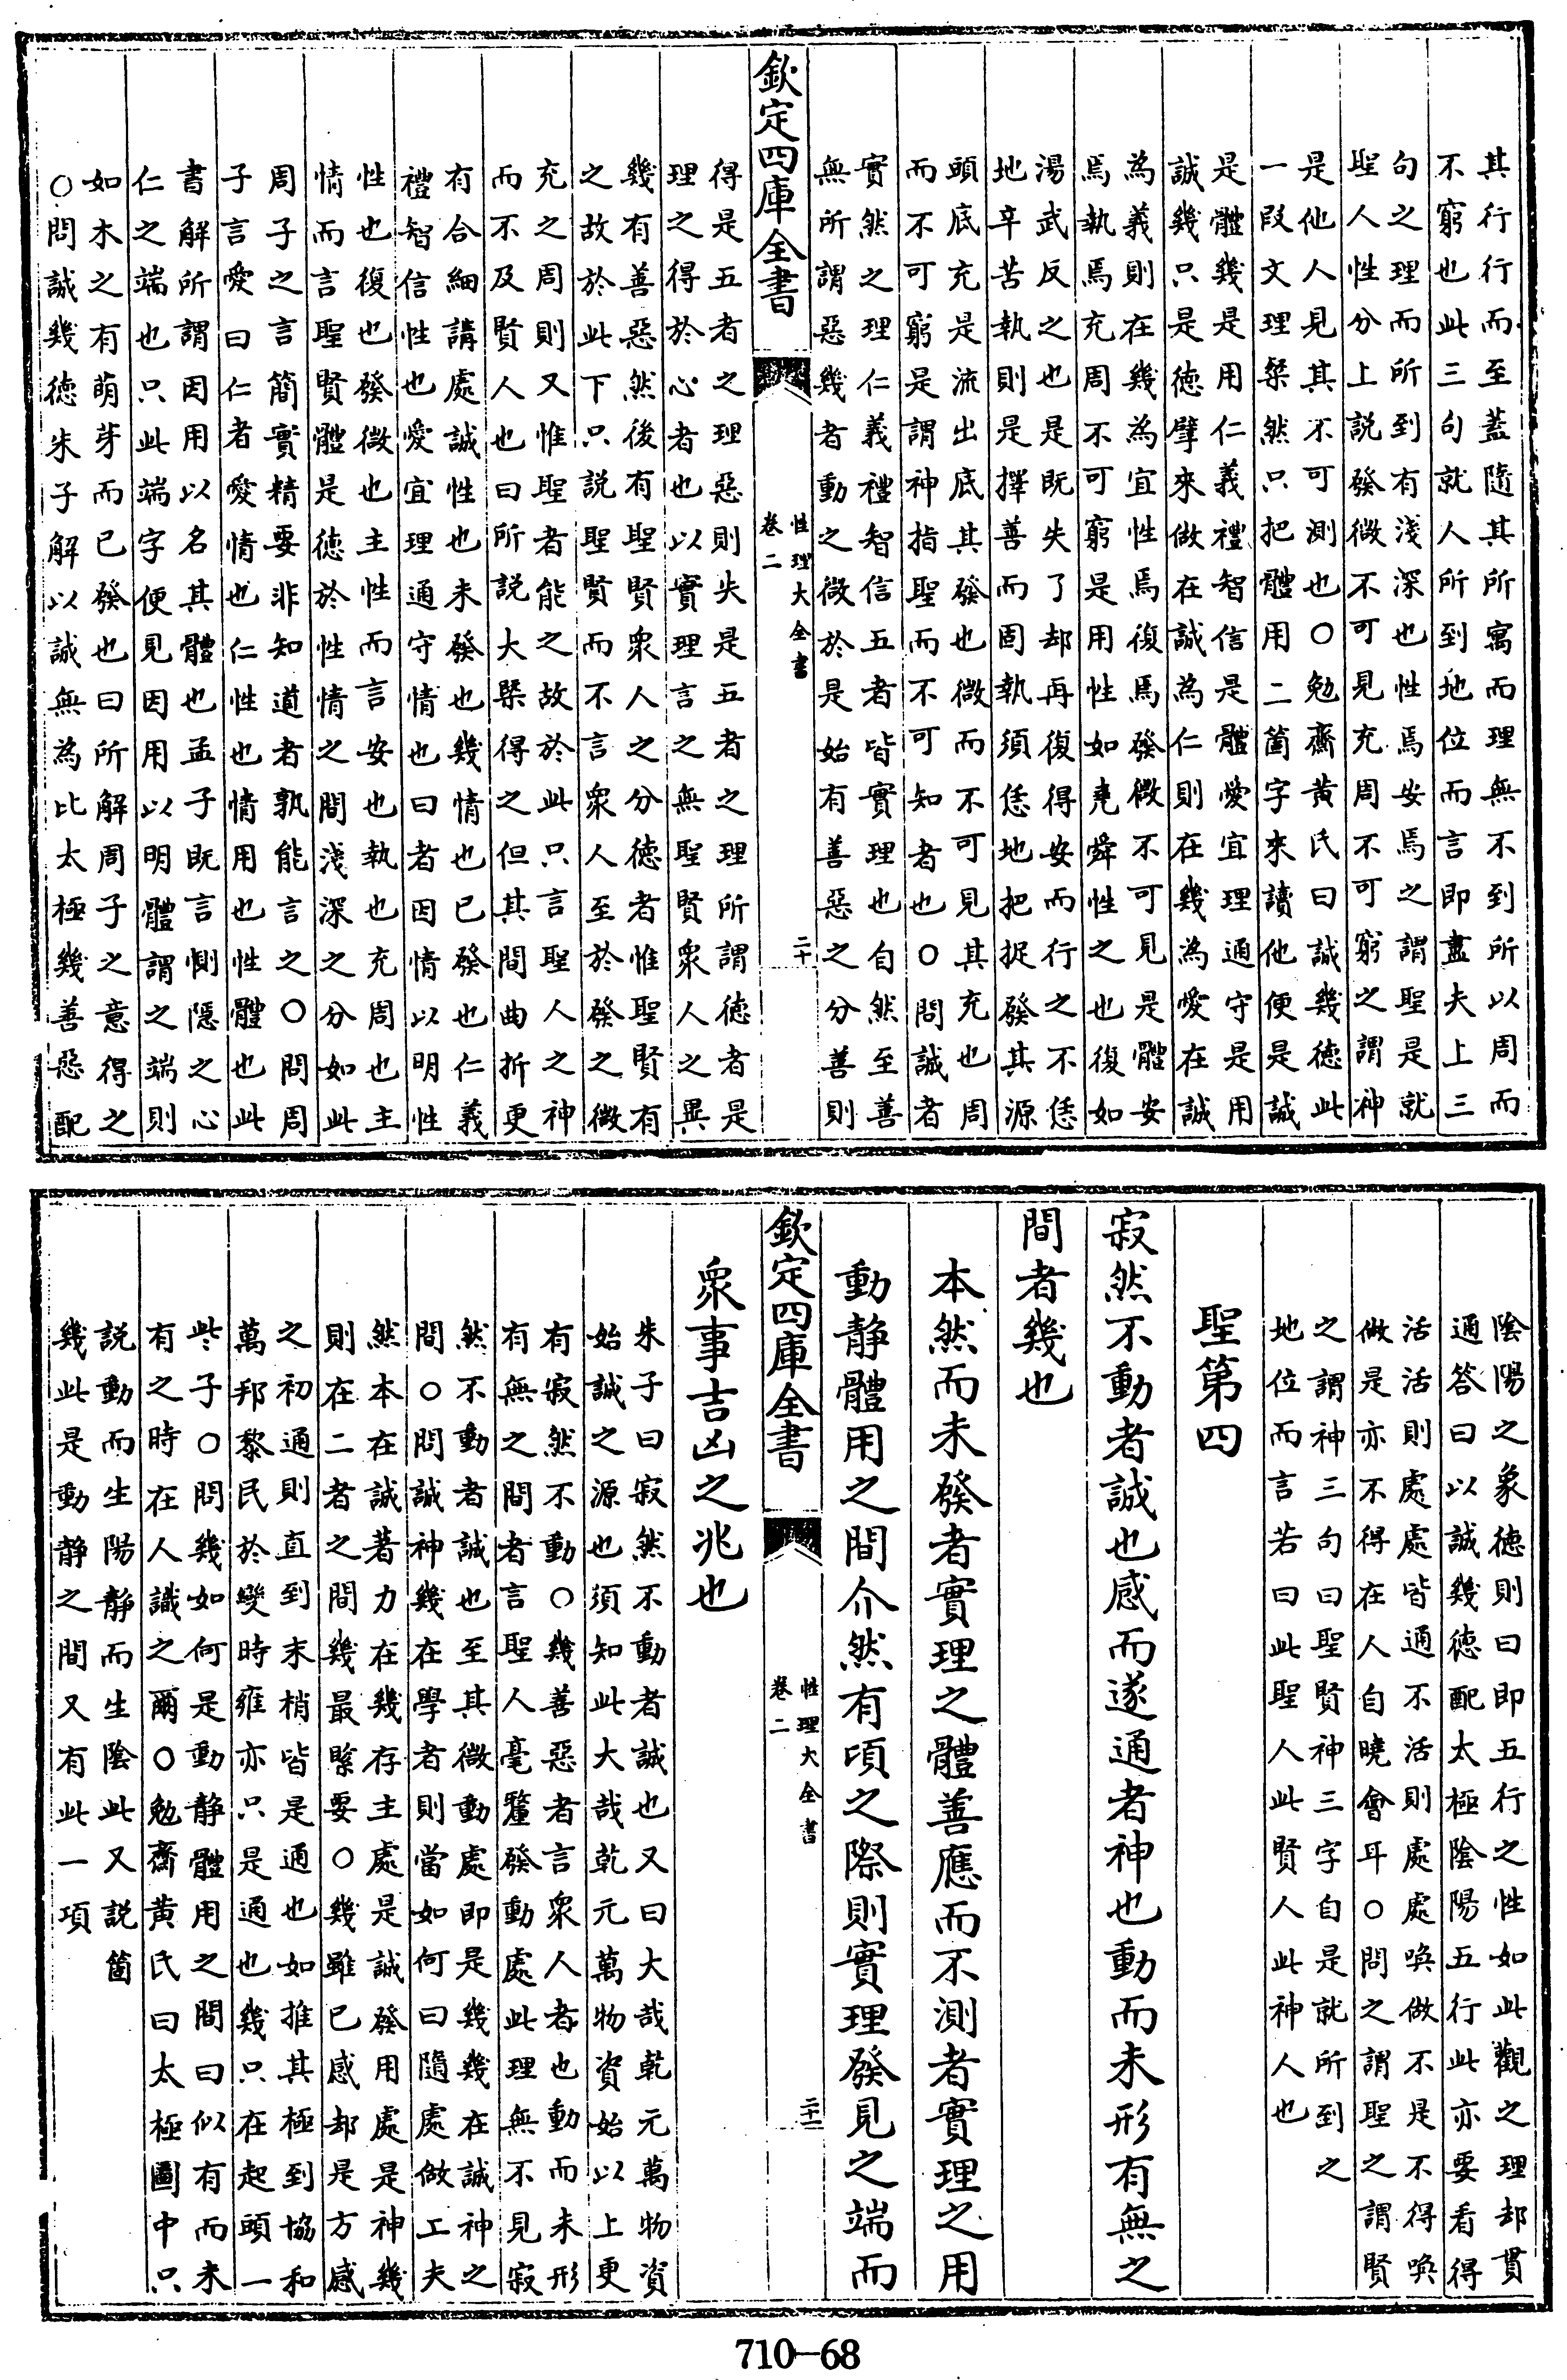 其行行而至蓋隨其所寓而理無不到所以周而
不窮也此三句就人所到地位而言即盡夫上三
句之理而所到有淺深也性焉安焉之謂聖是就
聖人性分上説發微不可見充周不可窮之謂神
是他人見其不可測也○勉齋黄氏曰誠幾德此
一段文理粲然只把體用二箇字來讀他便是誠
是體幾是用仁義禮智信是體愛宜理通守是用
誠幾只是德擘來做在誠為仁則在幾為愛在誠
為義則在幾為宜性焉復焉發微不可見是體安
焉執焉充周不可窮是用性如堯舜性之也復如
湯武反之也是既失了却再復得安而行之不恁
地辛苦執則是擇善而固執須恁地把捉發其源
頭底充是流出底其發也微而不可見其充也周
而不可窮是謂神指聖而不可知者也○問誠者
實然之理仁義禮智信五者皆實理也自然至善
無所謂惡幾者動之微於是始有善惡之分善則
欽定四庫全書
性理大全書
卷二
二十
得是五者之理惡則失是五者之理所謂德者是
理之得於心者也以實理言之無聖賢衆人之異
幾有善惡然後有聖賢衆人之分德者惟聖賢有
之故於此下只説聖賢而不言衆人至於發之微
充之周則又惟聖者能之故於此只言聖人之神
而不及賢人也曰所説大槩得之但其間曲折更
有合細講處誠性也未發也幾情也已發也仁義
禮智信性也愛宜理通守情也曰者因情以明性
性也復也發微也主性而言安也執也充周也主
情而言聖賢體是德於性情之間淺深之分如此
周子之言簡實精要非知道者孰能言之○問周
子言愛曰仁者愛情也仁性也情用也性體也此
書解所謂因用以名其體也孟子既言惻隱之心
仁之端也只此端字便見因用以明體謂之端則
如木之有萌芽而已發也曰所解周子之意得之
○問誠幾德朱子解以誠無為比太極幾善惡配
陰陽之象德則曰即五行之性如此觀之理却貫
通答曰以誠幾德配太極陰陽五行此亦要看得
活活則處處皆通不活則處處喚做不是不得喚
做是亦不得在人自曉會耳○問之謂聖之謂賢
之謂神三句曰聖賢神三字自是就所到之
地位而言若曰此聖人此賢人此神人也
聖第四
寂然不動者誠也感而遂通者神也動而未形有無之
間者幾也
本然而未發者實理之體善應而不測者實理之用
動静體用之間介然有頃之際則實理發見之端而
欽定四庫全書
性理大全書
卷二
二十一
衆事吉凶之兆也
朱子曰寂然不動者誠也又曰大哉乾元萬物資
始誠之源也須知此大哉乾元萬物資始以上更
有寂然不動○幾善惡者言衆人者也動而未形
有無之間者言聖人毫釐發動處此理無不見寂
然不動者誠也至其微動處即是幾幾在誠神之
間○問誠神幾在學者則當如何曰隨處做工夫
然本在誠著力在幾存主處是誠發用處是神幾
則在二者之間幾最緊要○幾雖已感却是方感
之初通則直到末梢皆是通也如推其極到協和
萬邦黎民於變時雍亦只是通也幾只在起頭一
些子○問幾如何是動静體用之間曰似有而未
有之時在人識之爾○勉齋黄氏曰太極圖中只
説動而生陽静而生陰此又説箇
幾此是動静之間又有此一項
710-68